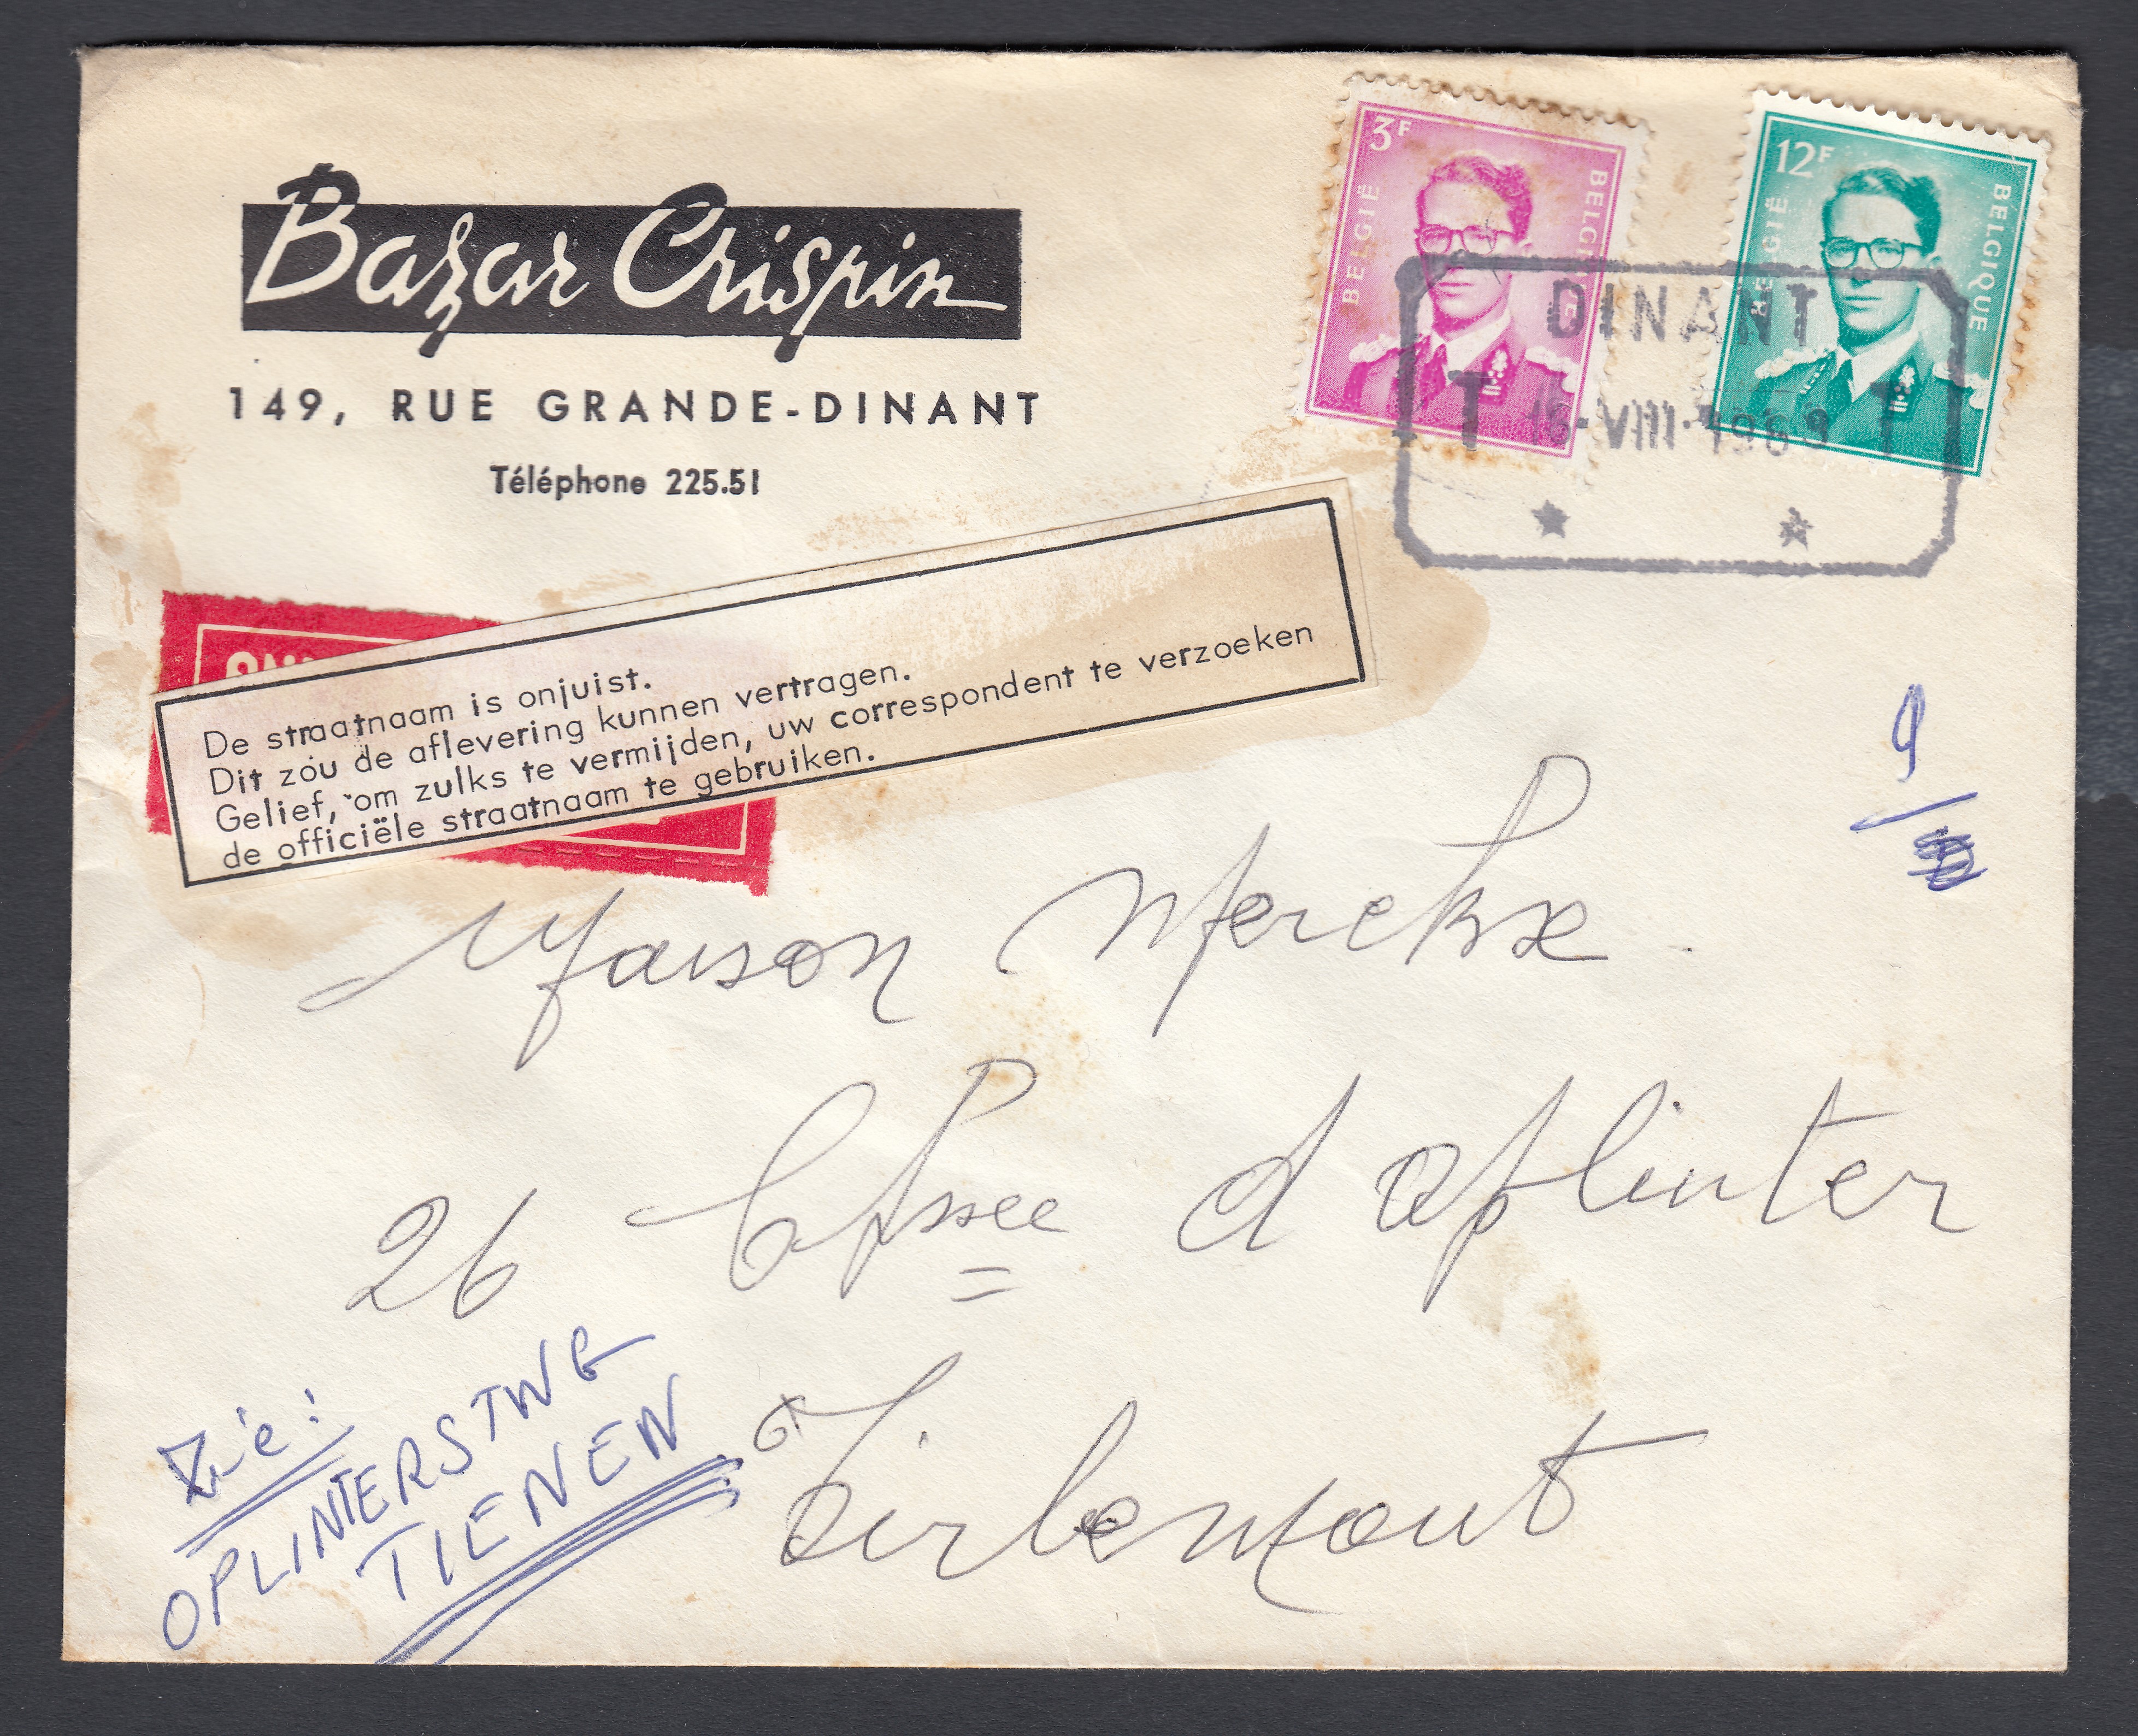 Bazar Crispin
149, RUE GRANDE-DINANT
Téléphone 225.51
3F
BELGIË
12F
BELGIË BELGIQUE
DINANT
T 16-VIII-1969 T
De straatnaam is onjuist.
Dit zou de aflevering kunnen vertragen.
Gelief, om zulks te vermijden, uw correspondent te verzoeken
de officiële straatnaam te gebruiken.
9
Maison Merckx
26 Chssee d Oplinter
Tirlemont
Zie:
OPLINTERSTWG
TIENEN